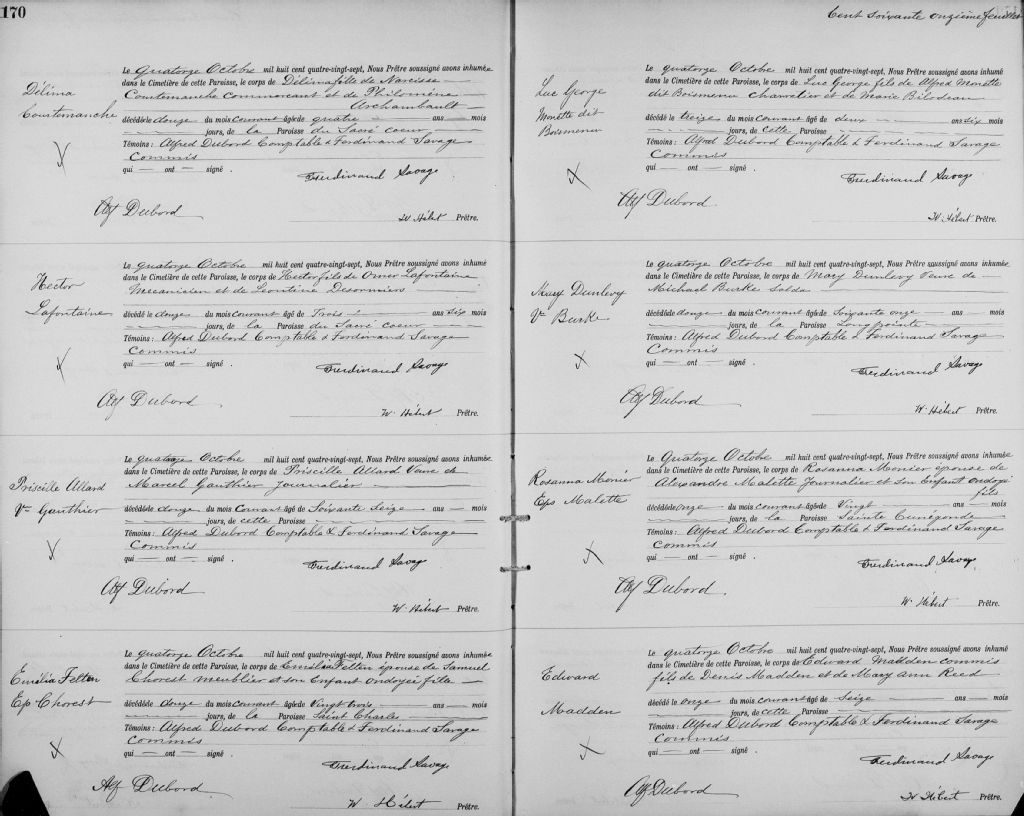 170
Délima
Courtemanche
Le quatorze Octobre mil huit cent quatre-vingt-sept, Nous Prêtre soussigné avons inhumé
dans le Cimetière de cette Paroisse, le corps de Délima fille de Narcisse
Courtemanche Commercant et de Philomène
Archambault
décédé le douze du mois courant âgé de quatre ans mois
jours, de la Paroisse du Sacré coeur
Témoins : Alfred Dubord Comptable & Ferdinand Savage
Commis
qui ont signé .
Ferdinand Savage
Alf Dubord
W. Hébert Prêtre.
Hector
Lafontaine
Le quatorze Octobre mil huit cent quatre-vingt-sept, Nous Prêtre soussigné avons inhumé
dans le Cimetière de cette Paroisse, le corps de Hector fils de Omer Lafontaine
Mecanicien et de Leontine Desormiers
décédé le douze du mois courant âgé de Trois ans six mois
jours, de la Paroisse du Sacré coeur
Témoins : Alfred Dubord Comptable & Ferdinand Savage
Commis
qui ont signé .
Ferdinand Savage
Alf Dubord
W. Hébert Prêtre.
Priscille Allard
Ve Gauthier
Le quatorze Octobre mil huit cent quatre-vingt-sept, Nous Prêtre soussigné avons inhumé
dans le Cimetière de cette Paroisse, le corps de Priscille Allard Veuve de
Marcel Gauthier Journalier
décédé le douze du mois Courant âgé de Soixante Seize ans mois
jours, de cette Paroisse
Témoins : Alfred Dubord Comptable & Ferdinand Savage
Commis
qui ont signé .
Ferdinand Savage
Alf Dubord
W. Hébert Prêtre.
Emélie Felten
Ep Chorest
Le quatorze Octobre mil huit cent quatre-vingt-sept, Nous Prêtre soussigné avons inhumé
dans le Cimetière de cette Paroisse, le corps de Emélie Felten épouse de Samuel
Chorest meublier et son Enfant ondoyée fille
décédé le douze du mois courant âgé de Vingt trois ans mois
jours, de la Paroisse Saint Charles
Témoins : Alfred Dubord Comptable & Ferdinand Savage
Commis
qui ont signé .
Ferdinand Savage
Alf Dubord
W. Hébert Prêtre.
Cent soixante onzième feuillet
Luc George
Monette dit
Boismenu
Le quatorze Octobre mil huit cent quatre-vingt-sept, Nous Prêtre soussigné avons inhumé
dans le Cimetière de cette Paroisse, le corps de Luc George fils de Alfred Monette
dit Boismenu charretier et de Marie Bilodeau
décédé le treize du mois Courant âgé de deux ans six mois
jours, de cette Paroisse
Témoins : Alfred Dubord Comptable & Ferdinand Savage
Commis
qui ont signé .
Ferdinand Savage
Alf Dubord.
W. Hébert Prêtre.
Mary Dunlevy
Ve Burke
Le quatorze Octobre mil huit cent quatre-vingt-sept, Nous Prêtre soussigné avons inhumé
dans le Cimetière de cette Paroisse, le corps de Mary Dunlevy Veuve de
Michael Burke Soldat
décédé le douze du mois courant âgé de Soixante onze ans mois
jours, de la Paroisse Longpointe
Témoins : Alfred Dubord Comptable & Ferdinand Savage
Commis
qui ont signé .
Ferdinand Savage
Alf Dubord
W. Hébert Prêtre.
Rosanna Monier
Eps Malette
Le Quatorze Octobre mil huit cent quatre-vingt-sept, Nous Prêtre soussigné avons inhumé
dans le Cimetière de cette Paroisse, le corps de Rosanna Monier épouse de
Alexandre Malette Journalier et son Enfant ondoyé
fils
décédé le onze du mois courant âgé de Vingt ans mois
jours, de la Paroisse Sainte Cunégonde
Témoins : Alfred Dubord Comptable & Ferdinand Savage
Commis
qui ont signé .
Ferdinand Savage
Alf Dubord.
W. Hébert Prêtre.
Edward
Madden
Le quatorze Octobre mil huit cent quatre-vingt-sept, Nous Prêtre soussigné avons inhumé
dans le Cimetière de cette Paroisse, le corps de Edward Madden commis
fils de Denis Madden et de Mary Ann Reed
décédé le onze du mois courant âgé de Seize ans mois
jours, de cette Paroisse
Témoins : Alfred Dubord Comptable & Ferdinand Savage
Commis
qui ont signé .
Ferdinand Savage
Alf Dubord
W. Hébert Prêtre.